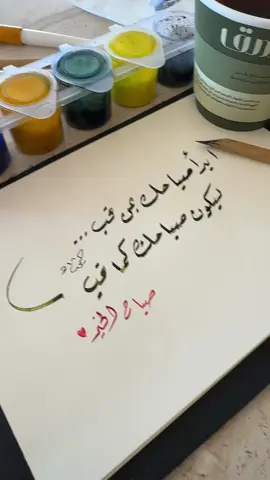 ابدأ صباحك بمن تحب ...
ليكون صباحك كما تحب
صباح الخير